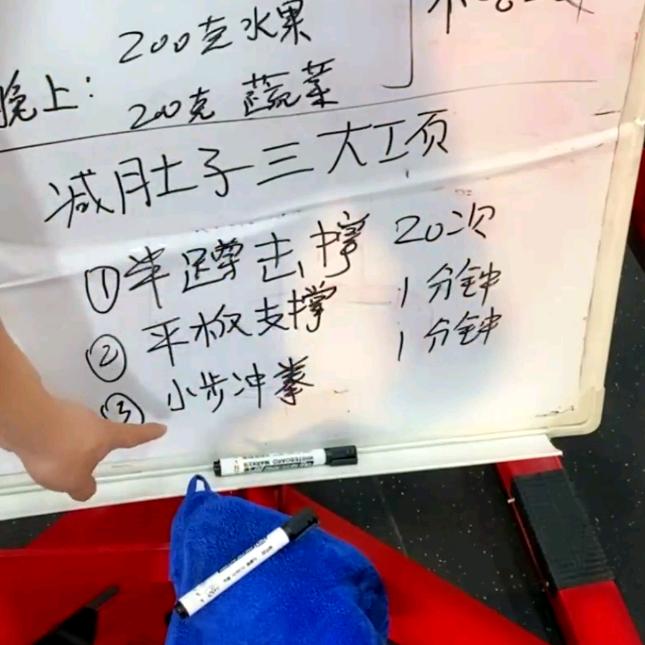 200克水果
晚上： 200克 蔬菜
减肚子三大工页
①半蹲去撑 20次
②平板支撑 1分钟
③小步冲拳 1分钟
WHITEBOARD MARKER